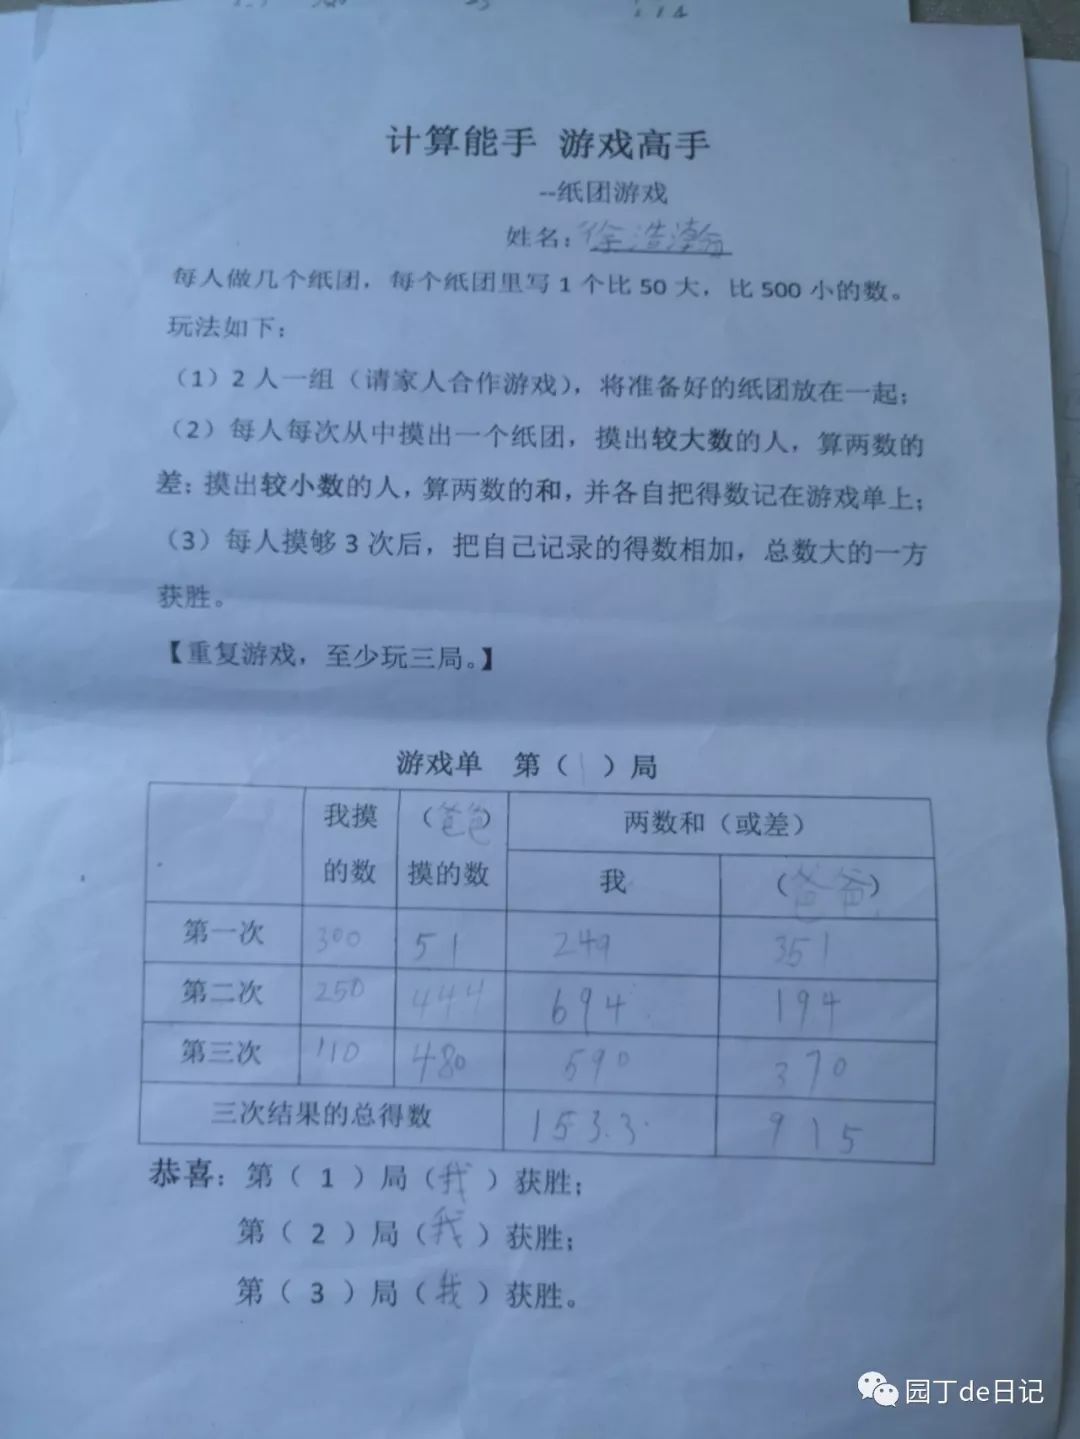 计算能手 游戏高手
--纸团游戏
姓名：徐浩瀚
每人做几个纸团，每个纸团里写1个比50大，比500小的数。
玩法如下：
（1）2人一组（请家人合作游戏），将准备好的纸团放在一起；
（2）每人每次从中摸出一个纸团，摸出较大数的人，算两数的
差；摸出较小数的人，算两数的和，并各自把得数记在游戏单上；
（3）每人摸够3次后，把自己记录的得数相加，总数大的一方
获胜。
【重复游戏，至少玩三局。】
游戏单 第（1）局
我摸的数 （爸爸）摸的数 两数和（或差）
我 （爸爸）
第一次 300 51 249 351
第二次 250 444 694 194
第三次 110 480 590 370
三次结果的总得数 1533 915
恭喜：第（1）局（我）获胜；
第（2）局（我）获胜；
第（3）局（我）获胜。
园丁de日记